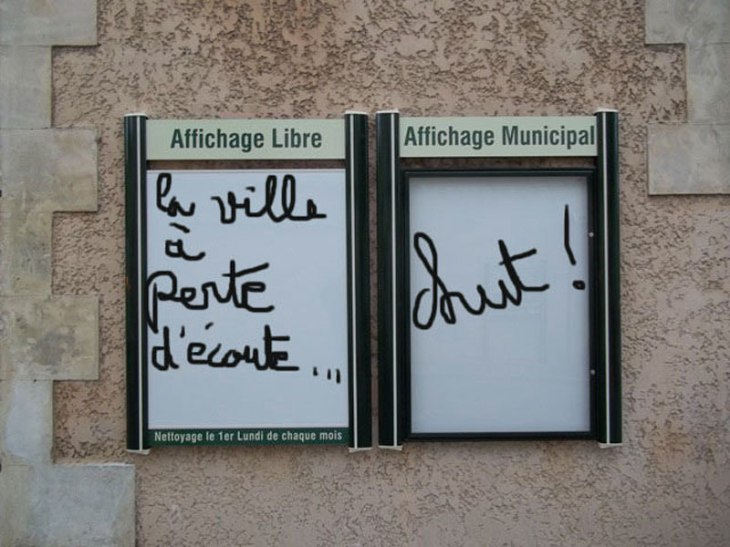 Affichage Libre
la ville
à
perte
d'écoute...
Nettoyage le 1er Lundi de chaque mois
Affichage Municipal
chut !